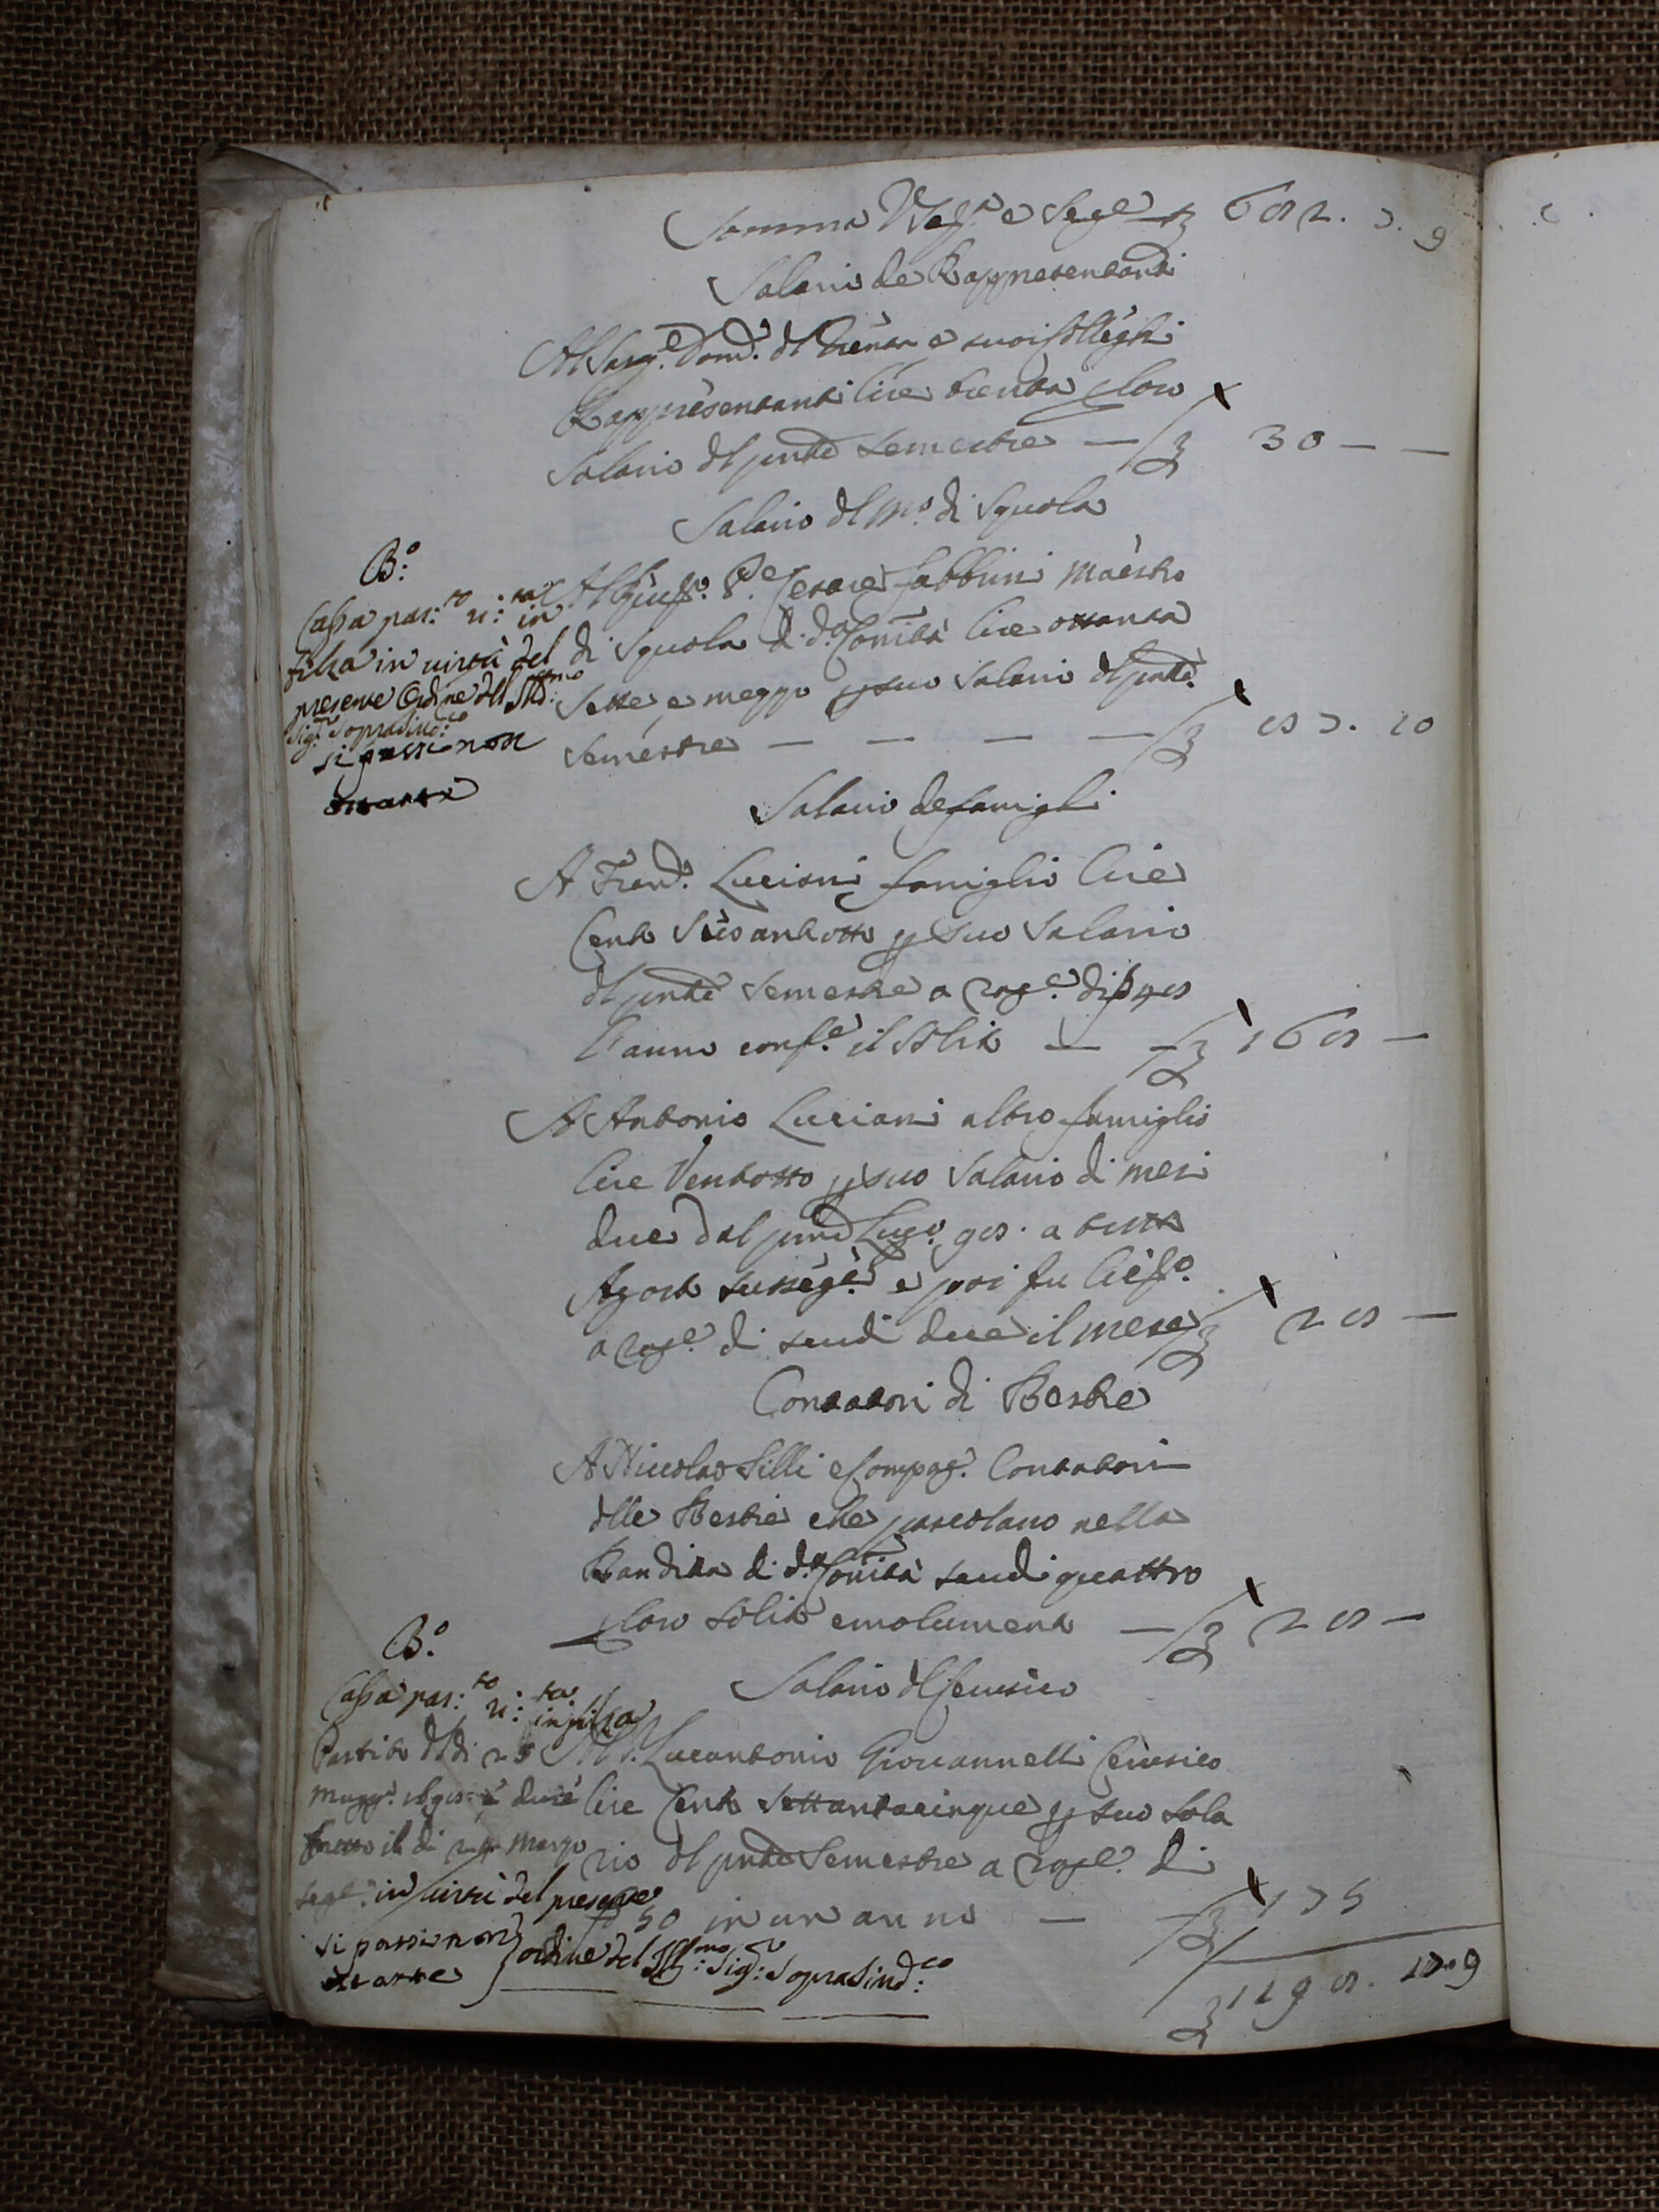 Somma e Segᵉ £ 682. 7. 9
Salario de Rappresentanti
Al Sarg.ᵉ Domᶜᵒ. e suoi Colleghi
Rappresentanti lire trenta p loro
Salario dl pnte Semestre — £ 30 — —
Salario dl Mº. di Squola
B.º
Cassa par:ᵗᵒ n: ᵗᵃ in
filza in virtù del
presente Ordine dell Ill:ᵐᵒ
Sigʳ Soprasind:ᶜᵒ
si passi non
ostante
Al Cesare Fabbrini Maestro
di Squola di dᵃ Comità lire ottanta
Sette e mezzo p suo Salario dl pnte
Semestre — — — — £ 87. 10
Salario de famigli
A Franᶜᵒ. Luciani famiglio lire
Cento Sessantotto p suo Salario
dl pnte Semestre a ragᵉ. di 48
l'anno confᵉ. il Solito — £ 168 —
A Antonio Luciani altro famiglio
lire Ventotto p suo Salario di mesi
due dal pmo Lugº. 98. a tutto
Agosto susseg.ᵉ e poi fu
a ragᵉ. di scudi due il mese £ 28 —
Contatori di Bestie
A Niccolao Silli e Compagⁱ. Contatori
dlle Bestie che pascolano nella
Bandita di dᵃ Comità scudi quattro
p loro solito emolumento — £ 28 —
Salario dl Cerusico
B.º
Cassa par:ᵗᵒ n: ᵗᵃ in filza
Partito dl di 28
Magg.º
il di 24 Marzo
segᵉ: in virtù del presente
si passi non
ostante
ordine del Ill:ᵐᵒ Sigʳ: Soprasind:ᶜᵒ
Al Lucantonio Giovannelli Cerusico
lire Cento Settantacinque p suo Sala
rio dl pnte Semestre a ragᵉ. di
50 in un anno — £ 175
£ 1198. 17. 9